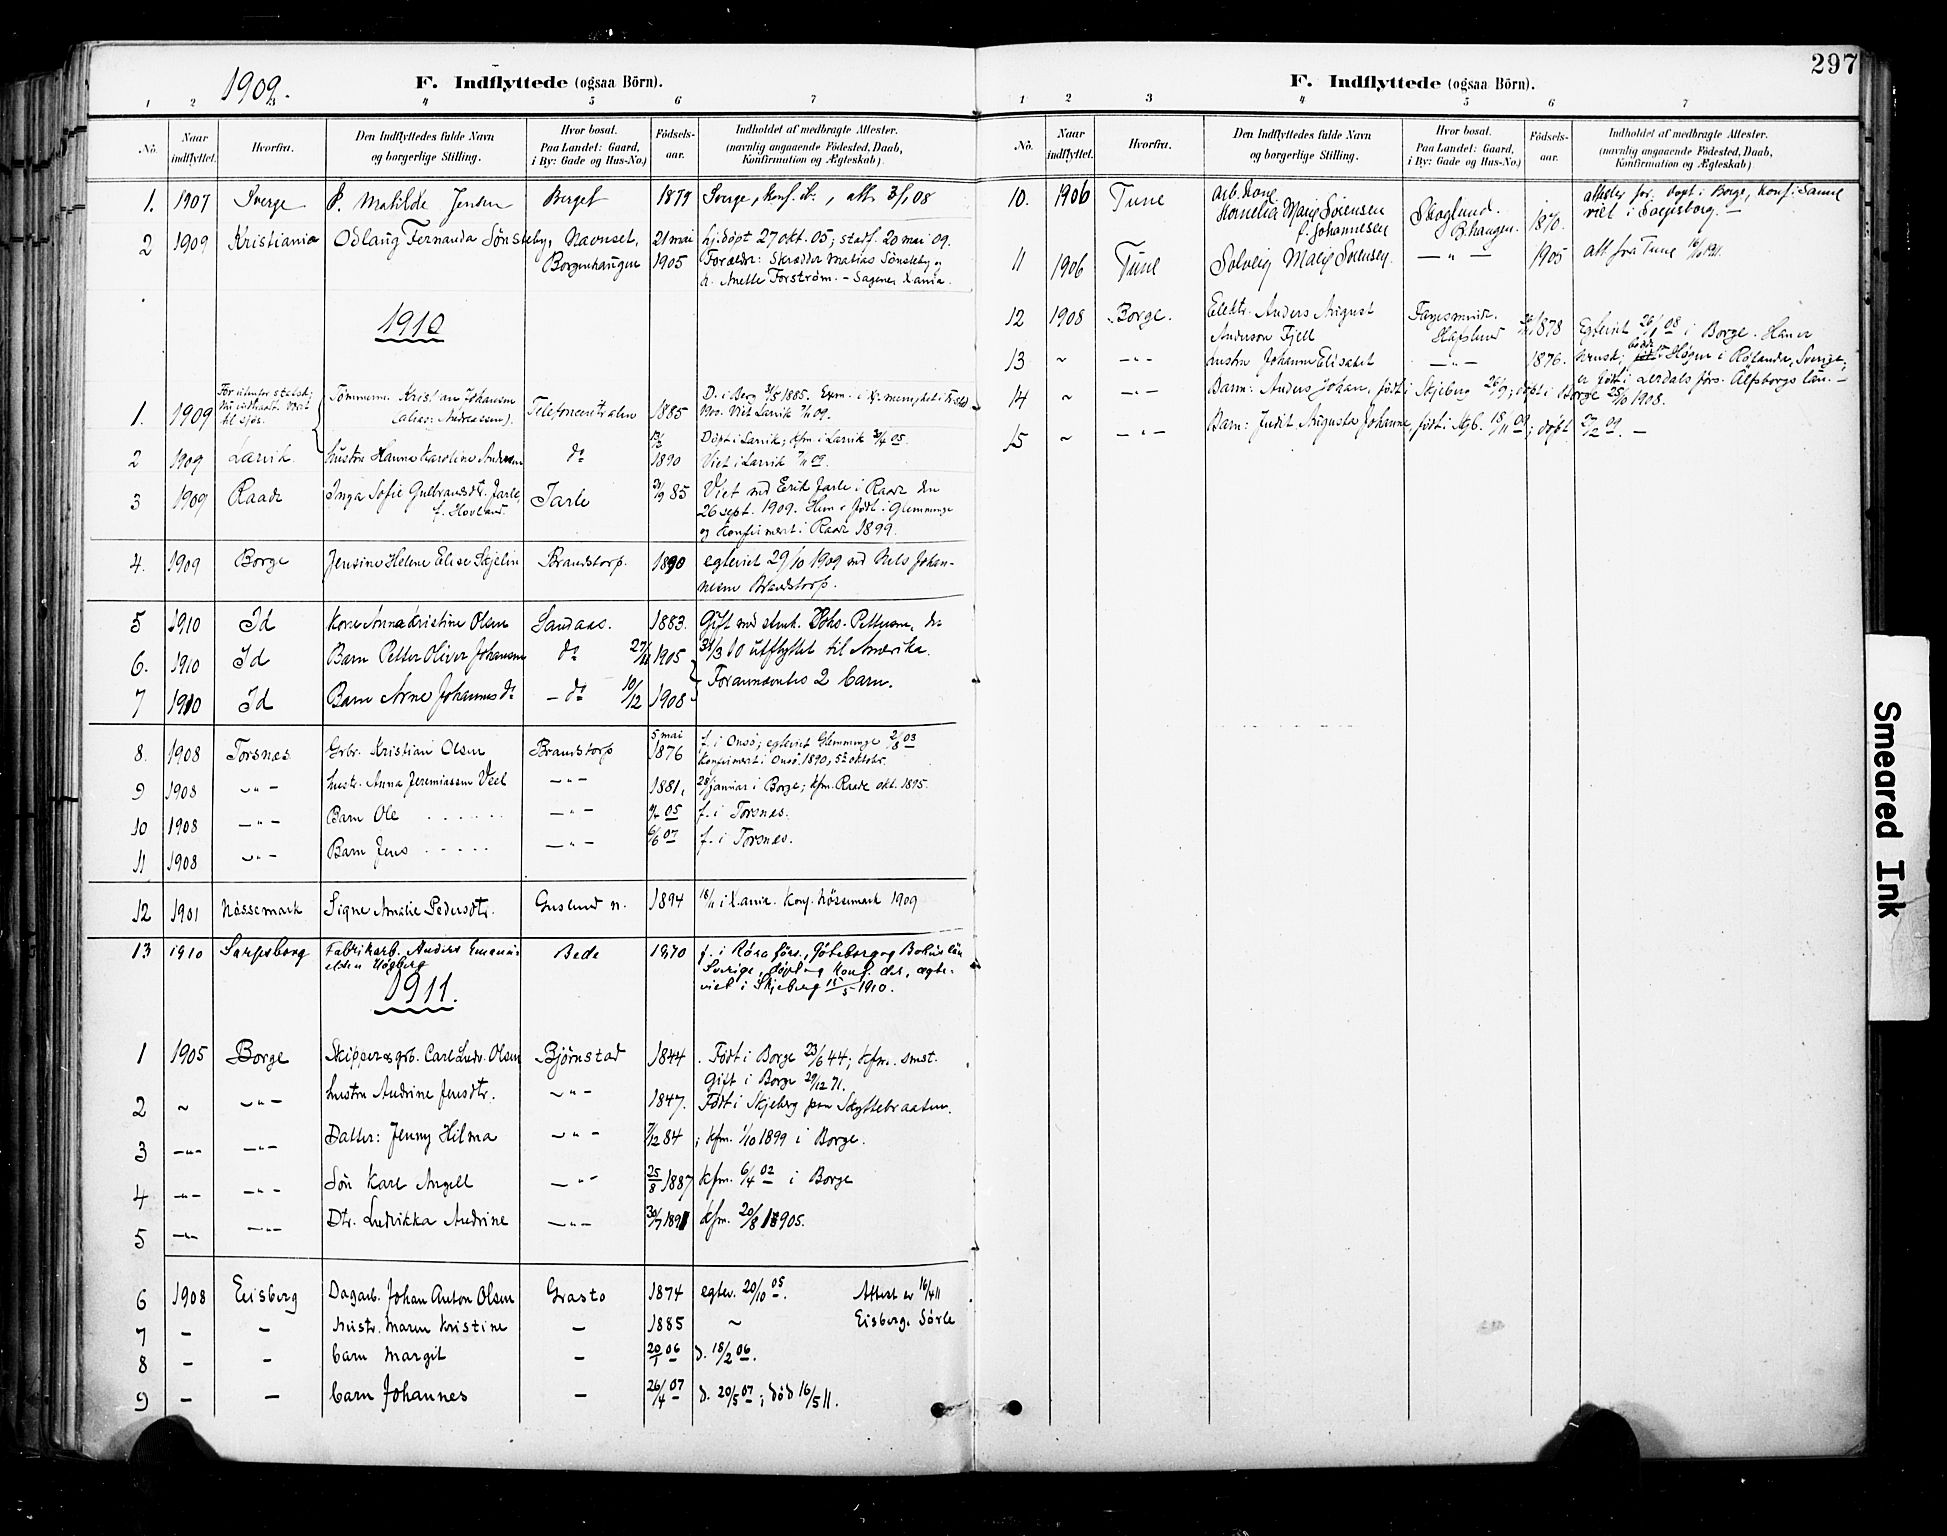 297
1909.
F. Indflyttede (ogsaa Börn).
1 2 3 4 5 6 7
No.
Naar indflyttet.
Hvorfra.
Den Indflyttedes fulde Navn og borgerlige Stilling.
Hvor bosat. Paa Landet: Gaard, i By: Gade og Hus-No.)
Fødsels-aar.
Indholdet af medbragte Attester. (navnlig angaaende Fødested, Daab, Konfirmation og Ægteskab).
1. 1907 Sverge P. Matilde Jensen Berget 1879 Sverge, Konf. do., att. 3/1 08
2 1909 Kristiania Odlaug Fernanda Sønsteby, Navnset, 21 mai hj.døpt 27 okt. 05; stadf. 20 mai 09.
Borgenhaugen 1905 Forældr: Skrædder Matias Sønsteby og
h. Anette Forstrøm. – Sagene, Xania.
1910
1. 1909 Tømmerm. Kristian Johansen Telefoncentralen 1885 D. i Berg 31/5 1885.
(alias: Andreassen). Viet Larvik 7/11 09.
2 1909 Larvik hustru Hanna Karoline Andersen do 1890 Døpt i Larvik; kfm. i Larvik 30/4 05.
Viet i Larvik 7/11 09.
3 1909 Raade Inga Sofie Gulbrandsdtr. Jarle, Jarle 21/9 85 Viet med Erik Jarle i Raade den
f. Hovland. 26 sept. 1909. Hun er født i Glemminge
og konfirmert i Raade 1899.
4. 1909 Borge Jensine Helene Elise Skjelin Brandstorp. 1890 egteviet 29/10 1909 med Nils Johan-
nesen Brandstorp.
5 1910 Id Kone Anna Kristine Olsen Sandaas. 1883. Gift med Johs. Pettersen, der
6. 1910 Id Barn Petter Oliver Johansen do 27/11 1905 31/3 10 utflyttet til Amerika.
7 1910 Id Barn Arne Johannes do – do 10/12 1908 Forannævntes 2 barn.
8. 1908 Torsnæs Grbr. Kristian Olsen Brandstorp 5 mai 1876 f. i Onsø; egteviet Glemminge 2/8 03
Konfirmert i Onsø 1890, 5te oktober.
9 1908 – " – hustr. Anna Jeremiassen Veel – " – 1881, 28 januar i Borge; kfm. Raade okt. 1895.
10 1908 – " – Barn Ole . . . . . . – " – 4/4 05 f. i Torsnæs.
11 1908 – " – Barn Jens . . . . . – " – 6/6 07 f. i Torsnæs.
12 1901 Nössemark Signe Amalie Pedersdtr. Guslund n. 1894 18/11 i Xania. Konf. Nössemark 1909
13 1910 Sarpsborg Fabrikarb. Anders Emanu- Bede 1870 f. i Röra förs., Göteborg og Bohus län
elsen Högberg Sverige, døpt og konf. der, ægte-
viet i Skjeberg 15/5 1910.
1911.
1 1905 Borge Skipper og grb. Carl Ludv. Olsen Bjørnstad 1844 Født i Borge 23/6 44; kfm. smst.
Gift i Borge 29/12 71.
2 ~ – " – hustru Andrine Jensdtr. – " – 1847. Født i Skjeberg paa Skyttebraaten.
3 – " – – " – Datter: Jenny Hilma – " – 7/12 84 ; kfm. 1/10 1899 i Borge.
4 – " – – " – Søn Karl Angell – " – 25/8 1887 kfm. 6/4 02 i Borge
5 – " – – " – Dtr. Ludvikka Andrine – " – 30/7 1891 kfm. 20/8 1905.
6 1908 Eisberg Dagarb. Johan Anton Olsen Grasto 1874 egtev. 20/10 05. Attest er 16/4 11
7 – – hustr. Maren Kristine – 1885 ~ Eisberg. Sørle
8 – – barn Margit – 20/1 06 d. 18/2 06.
9 – – barn Johannes – 26/4 07 d. 20/5 07; død 16/5 11.
F. Indflyttede (ogsaa Börn).
1 2 3 4 5 6 7
No.
Naar indflyttet.
Hvorfra.
Den Indflyttedes fulde Navn og borgerlige Stilling.
Hvor bosat. Paa Landet: Gaard, i By: Gade og Hus-No.)
Fødsels-aar.
Indholdet af medbragte Attester. (navnlig angaaende Fødested, Daab, Konfirmation og Ægteskab).
10. 1906 Tune Arb. kone Skoglund. 1870. døpt i Borge, konf. i samme
Kornelia Marie Sørensen B.haugen. viet i Sarpsborg. –
f. Johannesen
11 1906 Tune Solveig Marie Sørensen. – " – 1905 att fra Tune
12 1908 Borge. Elektr. Anders August Hafslund 1878 Egteviet 26/1 08 i Borge. Han er
Anderson Fjell
13 ~ – " – hustru Johanne Elisabet – " – 1876. svensk; i Rölanda, Sverige;
er født i Lerdals förs. Älfsborgs län. –
14 ~ – " – Barn: Anders Johan, født i Skjeberg 26/9; døbt i Borge 25/10 1908.
15 ~ – " – Barn: Judit Augusta Johanne, født i Skjb. 15/11 09; døbt 27/2 09. –
Smeared Ink